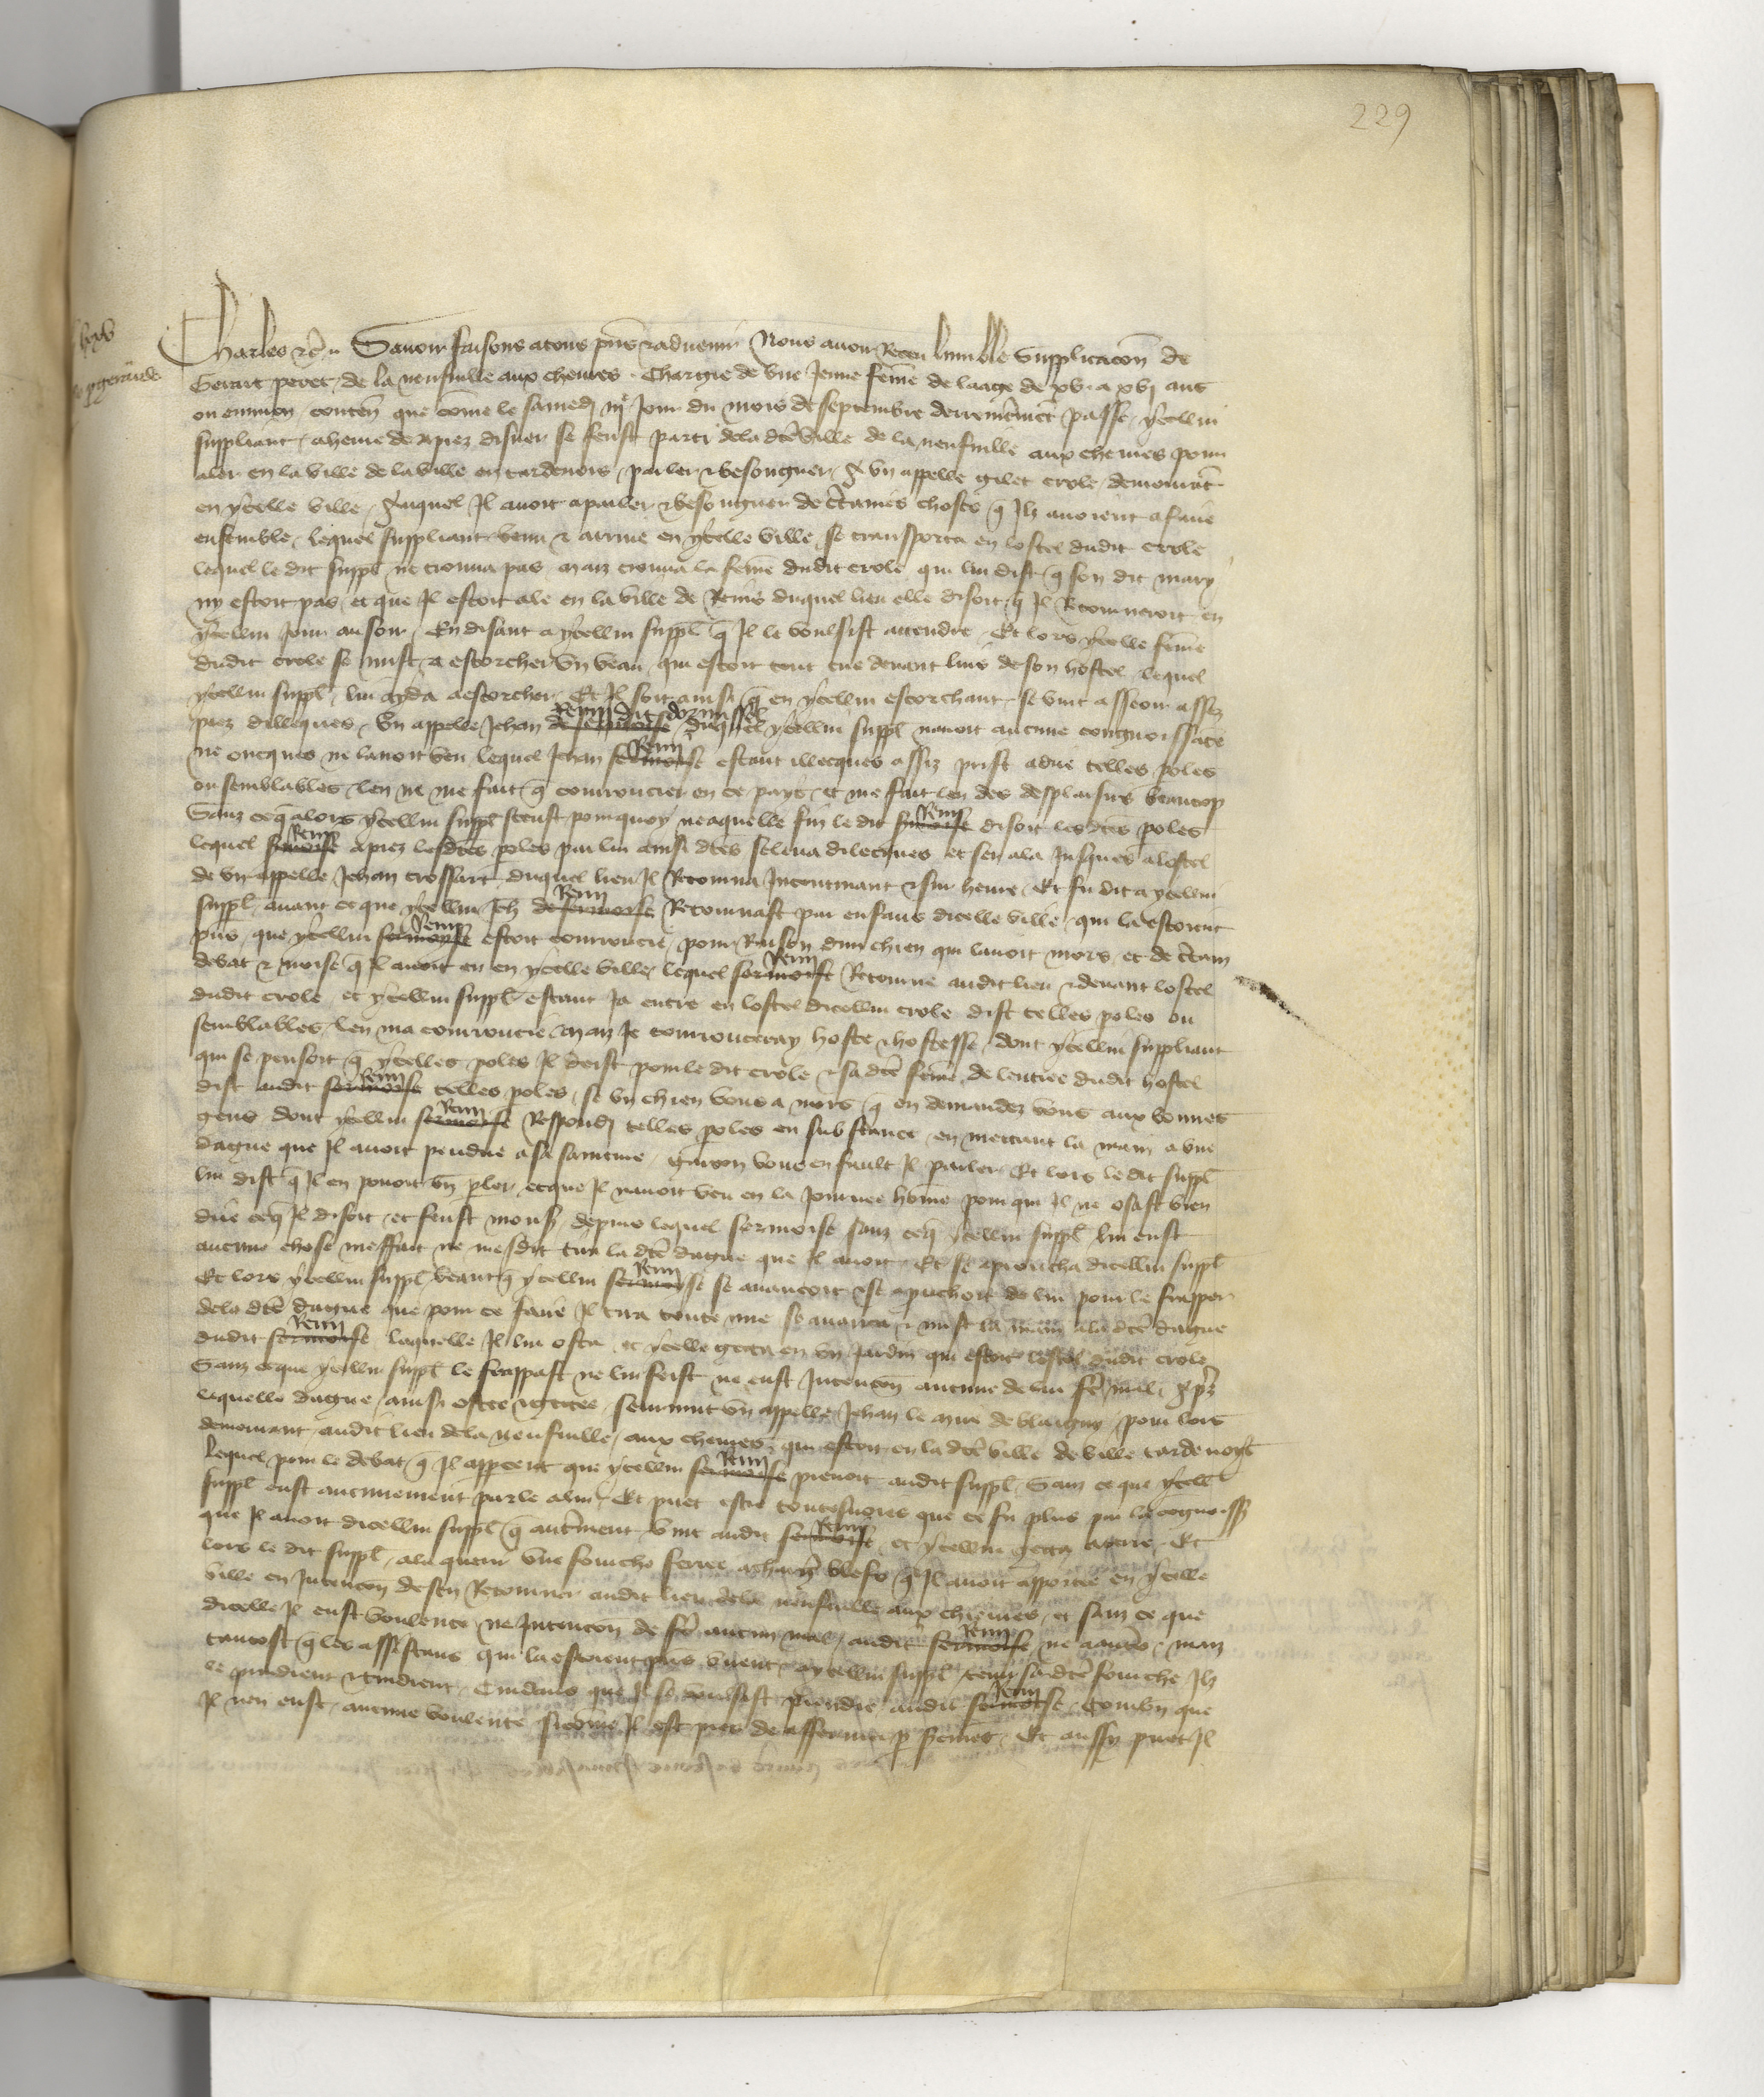 229
Charles &c Savoir faisons a tous p̄ns & advenir Nous avon Receu humble supplicacōn de
Gerart petet de la neufville aux chemes Chargie de une Jeune feme de laage de xv a xvj ans
ou environ contenā que cōme le samedj jour du mois de septembre derrenierement passe ycellui
suppliant a heure de apres disner se feust parti de la dcē ville de la neufville aux chemes pour
aler en la ville de laville en tardenois parler & besongner a un appelle gilet crole demourāt
en ycelle ville auquel Il avoit a parler & besongner de ctaines choses q̄ Ilz avoient a faire
ensemble lequel suppliant venu & arrive en ycelle ville se transporta en lostel dudit crole
lequel le dit suppl ne trouva pas maiz trouva la feme dudit crole qui lui dist q̄ son dit mary
ny estoit pas et que Il estoit ale en la ville de Reins duquel lieu elle disoit q̄ Il Retourneroit en
ycellui jour au soir En disant a ycellui suppl q̄ Il le voulsist attendre Et lors ycelle feme
dudit crole se mist a escorcher un veau qui estoit tout tue devant luis de son hostel lequel
ycellui suppl lui ayda a escorcher Et Il soit ainsi q̄ en ycellui escorchant se vint asseoir assez
prez dillecques un appelle Jehan de sermoise Remi dit duquel ycellui suppl navoit aucune congnoissāce
ne oncques ne lavoit veu lequel Jehan sermoise Remi estant illecques assiz prist a dire telles poles
ou semblables len ne me fait q̄ courroucier en ce pays et me fait len des desplaisirs beaucop
Sanz ce q̄ alors ycellui suppl sceust pourquoy ne a quelle fin le dit sermoise Remi disoit lesdces poles
lequel sermoise Remi apres lesdces poles par lui ainsi dces se leva dilecques et sen ala Jusques a lostel
de un appelle Jehan crossart duquel lieu Il Retourna Incontinant & sur heure Et fu dit a ycellui
suppl avant ce que ycellui Jeh de sermoise Remi Retournast par enfans dicelle ville qui la estoient
p̄ns que ycellui sermoise Remi estoit courroucie pour Raison dun chien qui lavoit mors et de ctain
debat & noise q̄ Il avoit eu en ycelle ville lequel sermoise Remi Retourne audit lieu & devant lostel
dudit crole et ycellui suppl estant Ja entre en lostel dicellui crole dist telles poles ou
semblables len ma courroucie maiz Je courrouceray hoste & hostesse dont ycellui suppliant
qui se pensoit q̄ ycelles poles Il deist pour le dit crole & sa dcē feme de lentree dudit hostel
dist audit sermoise Remi telles poles se un chien vous a mors q̄ en demandez vous aux bonnes
gens dont ycellui sermoise Remi Respondj telles poles en substance en mettant la main a une
dague que Il avoit pendue a sa sainture garcon vous en fault Il parler Et lors le dit suppl
lui dist q̄ Il en povoit bn pler et que Il navoit veu en la Journee hōme pour qui Il ne osast bien
dire ce q̄ Il disoit et feust depuis lequel sermoise sanz ce q̄ ycellui suppl lui eust
aucune chose meffait ne mesdit tira la dcē dague que Il avoit Et se aproucha dicellui suppl
Et lors ycellui suppl veant q̄ ycellui sermoise Remi se avancoit & se aprouchoit de lui pour le frapper
de la dcē dague que pour ce faire Il tira toute nue se avanca & mist la main a la dcē dague
dudit sermoise Remi laquelle Il lui osta et ycelle getta en un Jardin qui estoit lostel dudit crole
Sanz ce que ycellui suppl le frappast ne lui feist ne eust Intencōn aucune de lui fe mal
lequelle dague ainsi ostee & gettee seurvint un appelle Jehan le mire de blaigny pour lors
demourant audit lieu de la neufville aux chemes qui estoit en la dcē ville de ville tardenoys
lequel pour le debat q̄ Il apperceut que ycellui sermoise Remi prenoit audit suppl Sanz ce que ycell
suppl eust aucunement parle a lui Et puet estre toutesvoies que ce fu plus par la cognoiss
que Il avoit dicellui suppl q̄ autrement vint audit sermoise Remi et ycellui getta a terre Et
lors le dit suppl ala querir une fourche ferree a chargr blefs q̄ Il avoit apportee en ycelle
ville en Intencōn de sen Retourner audit lieu de la neufville aux chemes et sanz ce que
dicelle Il eust voulente ne Intencōn de fe aucun mal audit sermoise Remi ne a autre maiz
tantost q̄ les assistans qui la estoient p̄ns virent a ycellui suppl tenir sa dcē fourche Ilz
le prindrent & tindrent Cuidans que Il se voulsist prendre audit sermoise Remi Combn que
Il nen eust aucune voulente sicōme Il est prest de affermer p serment Et aussy puet Il